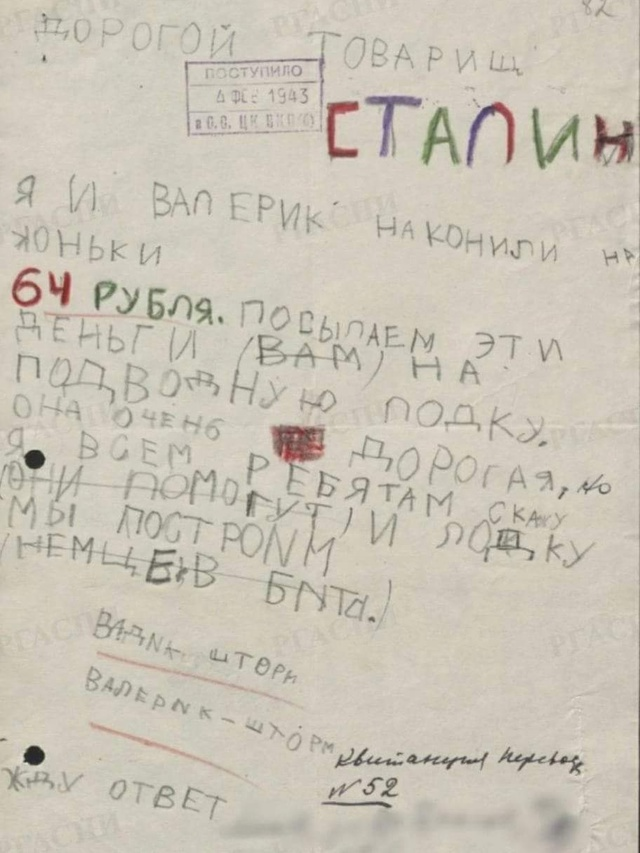 82
ДОРОГОЙ ТОВАРИЩ
ПОСТУПИЛО
4 ФЕВ 1943
в О.С. ЦК ВКП(б)
СТАЛИН
Я И ВАЛЕРИК НАКОПИЛИ НА
КОНЬКИ
64 РУБЛЯ. ПОСЫЛАЕМ ЭТИ
ДЕНЬГИ (ВАМ) НА
ПОДВОДНУЮ ЛОДКУ.
ОНА ОЧЕНЬ ДОРОГАЯ, но
Я ВСЕМ РЕБЯТАМ СКАЖУ
(ОНИ ПОМОГУТ) И ЛОДКУ
МЫ ПОСТРОИМ
(НЕМЦЕВ БИТЬ.)
ВАДИК ШТОРМ
ВАЛЕРИК – ШТОРМ
Квитанция перевод
N 52
ЖДУ ОТВЕТ
РГАСПИ